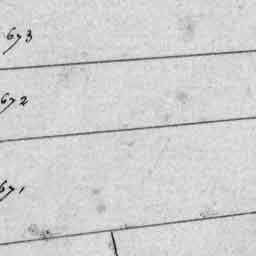 673
672
671